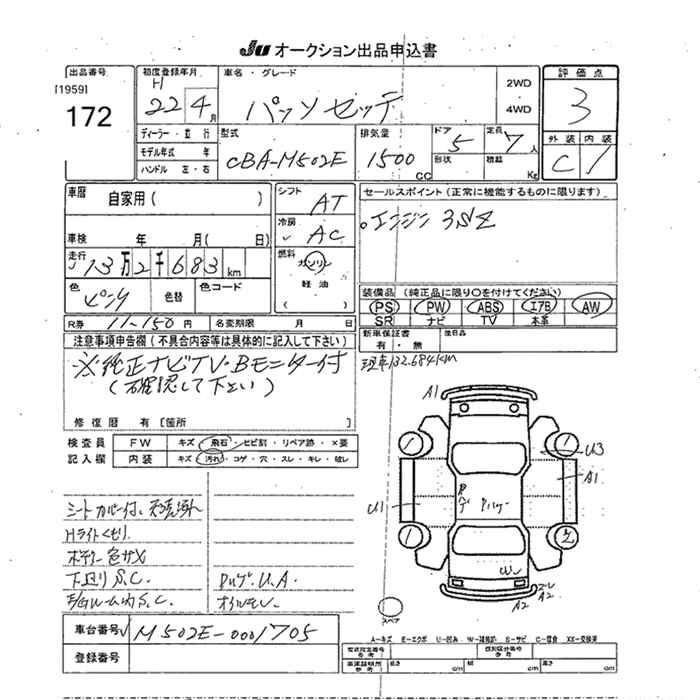 JU オークション出品申込書
出品番号 初度登録年月 車名・グレード 2WD 4WD 評価点
[1959]
172
H 22 4月
パッソセッテ
3
ディーラー・並行 型式 排気量 ドア 5 定員 7人 外装 内装
モデル年式 年 CBA-M502E 1500cc 形状 積載 Kg C 1
ハンドル 左・右
車暦 自家用( ) シフト AT セールスポイント(正常に機能するものに限ります)
冷房 AC エンジン 3SZ
車検 年 月( 日)
走行 13万2千683km 燃料 ガソリン
軽油
( )
色 ピンク 色替 色コード
装備品(純正品に限り〇を付けてください)
PS PW ABS エアB AW
SR ナビ TV 本革
R券 11-150円 名変期限 月 日 新車保証書 後日品
有・無
注意事項申告欄(不具合内容等は具体的に記入して下さい)
現車132.684KM
※純正ナビTV・Bモニター付
(確認して下さい)
修復暦 有[箇所
検査員 FW キズ・飛石・ヒビ割・リペア跡・×要
記入欄 内装 キズ・汚れ・コゲ・穴・スレ・キレ・破レ
A1
1
1
U3
A1
U1
1
2
W
A2
A2
スペア
シートカバー付、
Hライトくもり
ボデー色サメ
下廻りS.C.
S.C.
U.A.
車台番号 M502E-0001705
登録番号
A-キズ E-エクボ U-凹み W-補修跡 S-サビ C-腐食 XX-交換済
長さ cm 幅 cm 高さ cm